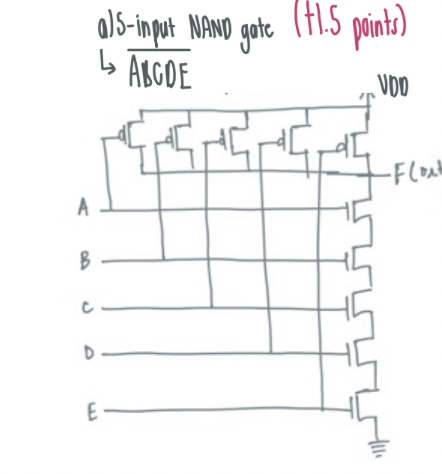 a) 5-input NAND gate (+1.5 points)
↳ ABCDE
VDD
F(out
A
B
C
D
E